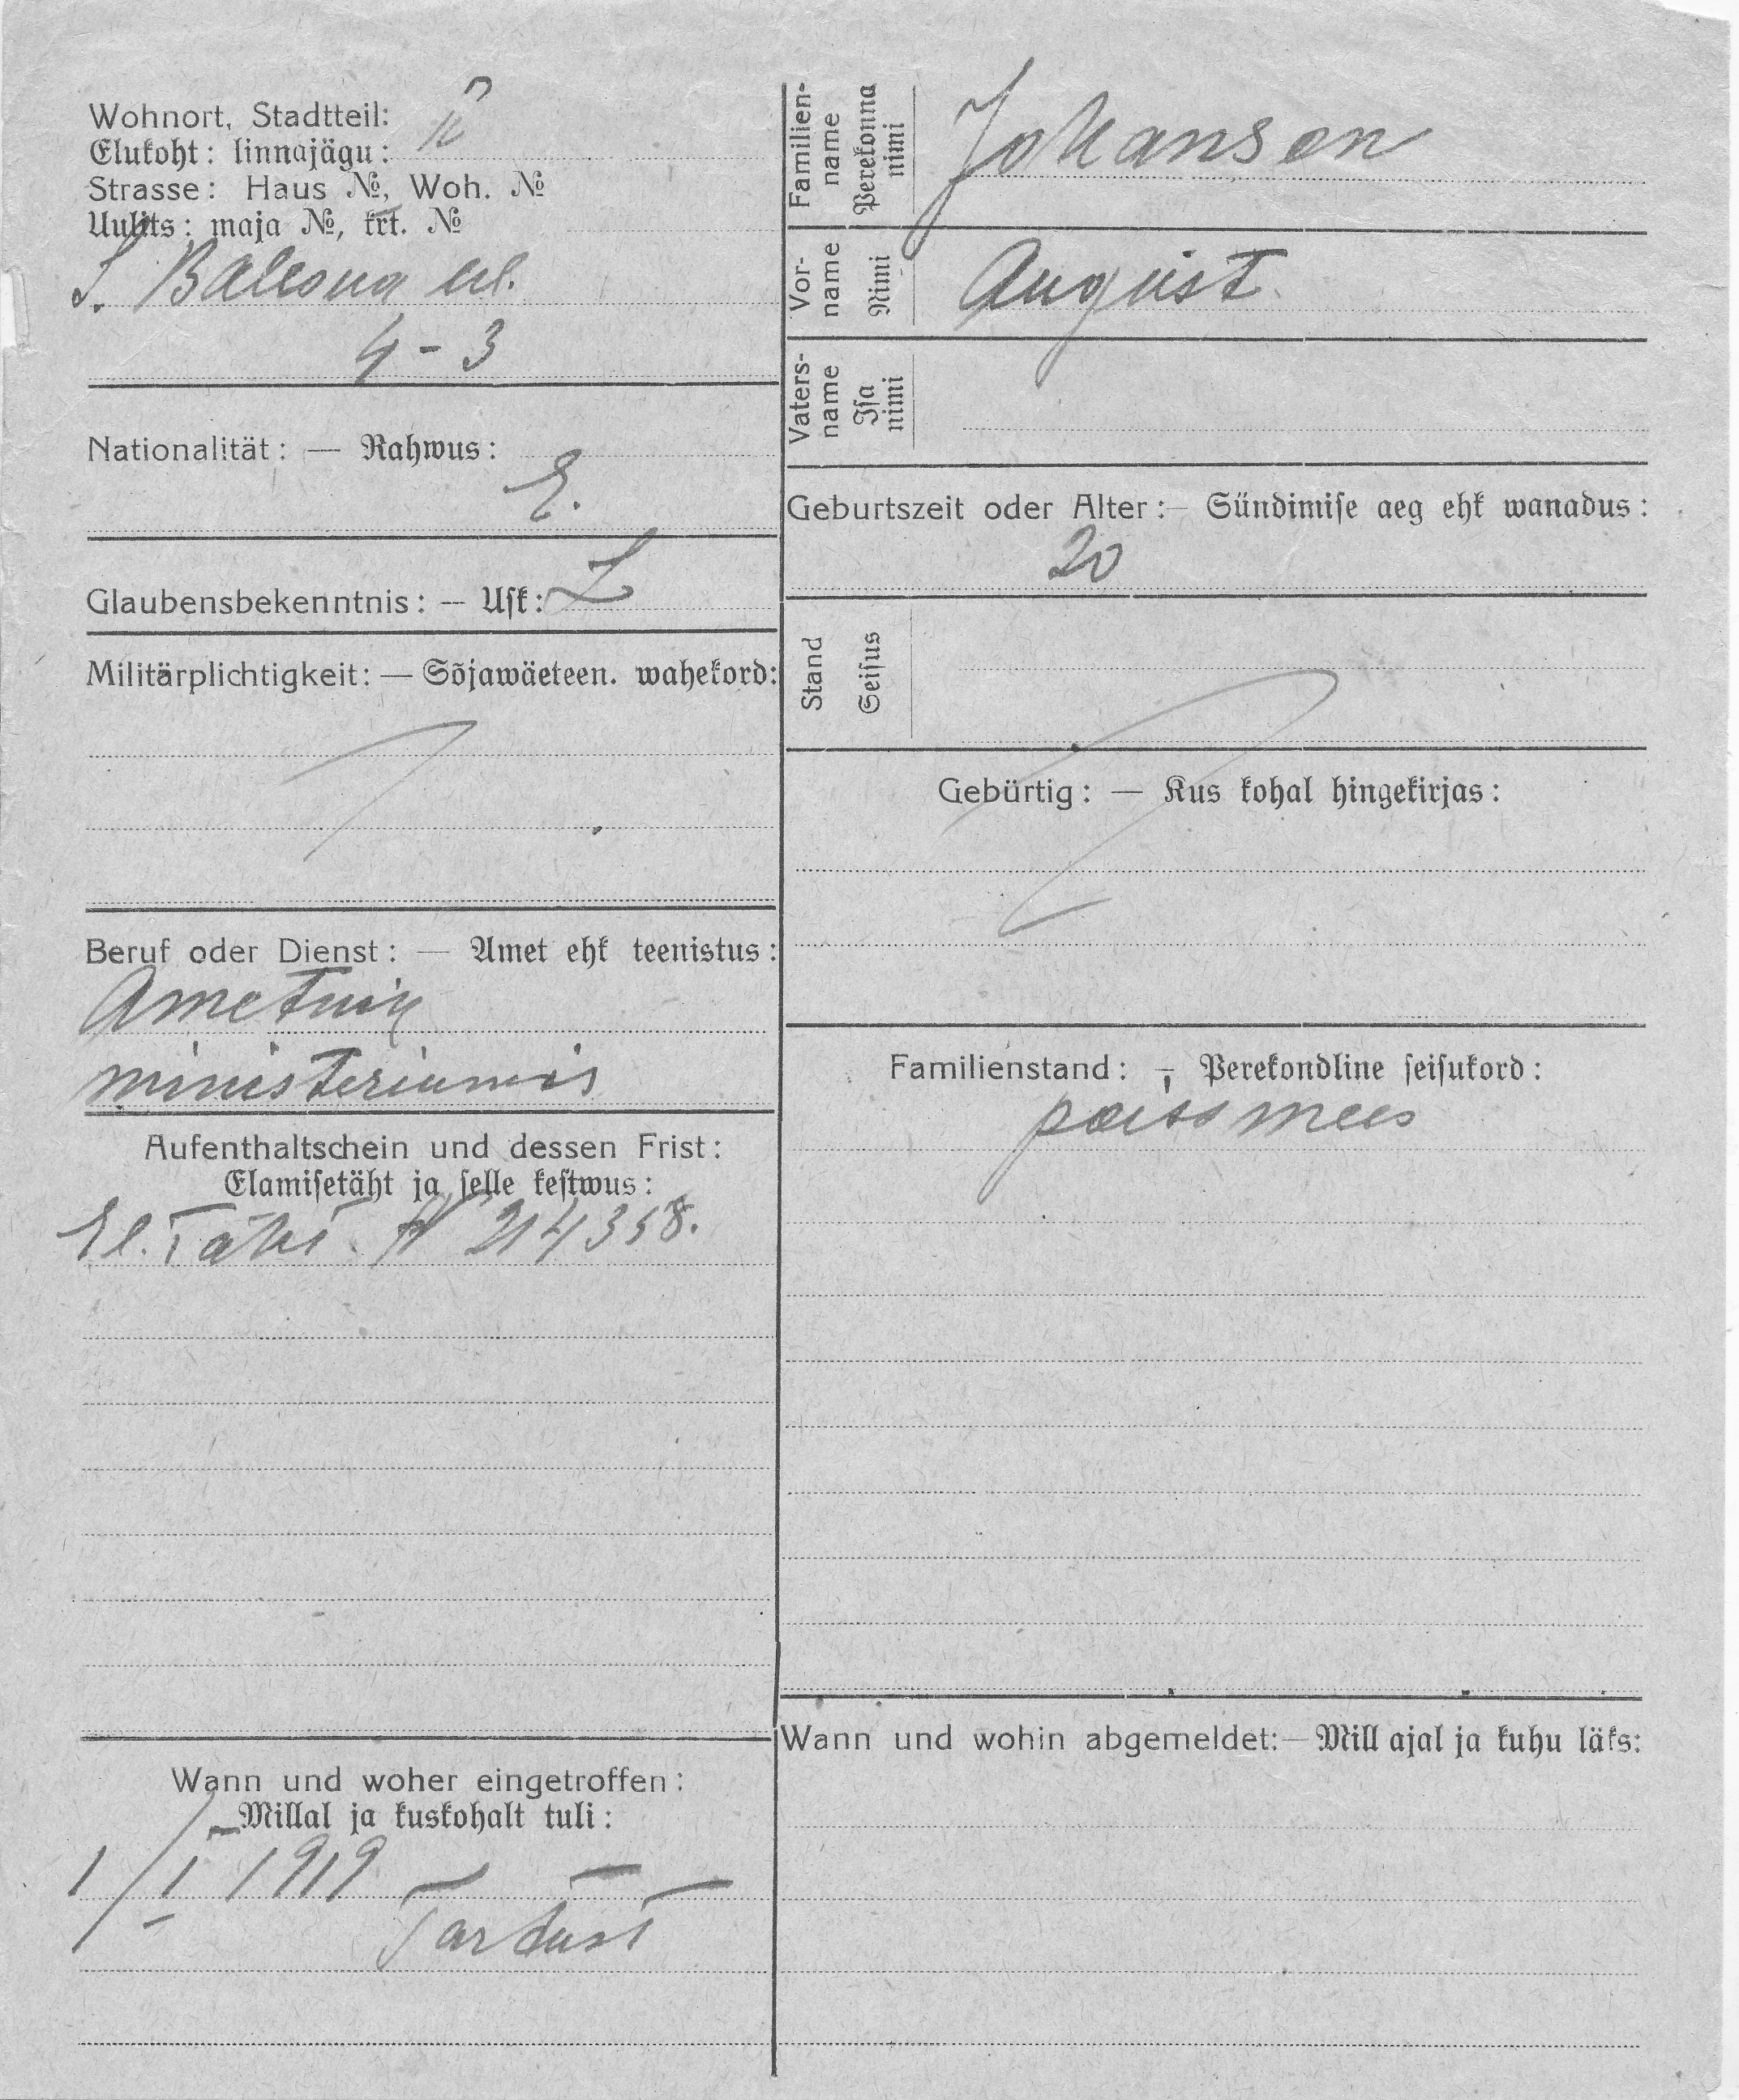 Wohnort, Stadtteil:
Elukoht: linnajägu:
Strasse: Haus №, Woh. №
Uulits: maja №, krt. №
ul.
4 - 3
Nationalität: — Rahwus:
E.
Glaubensbekenntnis: — Usk: L
Militärplichtigkeit: — Sõjawäeteen. wahekord:
Beruf oder Dienst: — Amet ehk teenistus:
Ametnik
ministeriumis
Aufenthaltschein und dessen Frist:
Elamisetäht ja selle kestwus:
El. Täht. № 214358.
Wann und woher eingetroffen:
Millal ja kuskohalt tuli:
1/I 1919
Tartust
Familien-name Perekonna nimi
Johansen
Vor-name Nimi
August
Vaters-name Isa nimi
Geburtszeit oder Alter: — Sündimise aeg ehk wanadus:
20
Stand Seisus
Gebürtig: — Kus kohal hingekirjas:
Familienstand: — Perekondline seisukord:
poissmees
Wann und wohin abgemeldet: — Mill ajal ja kuhu läks: